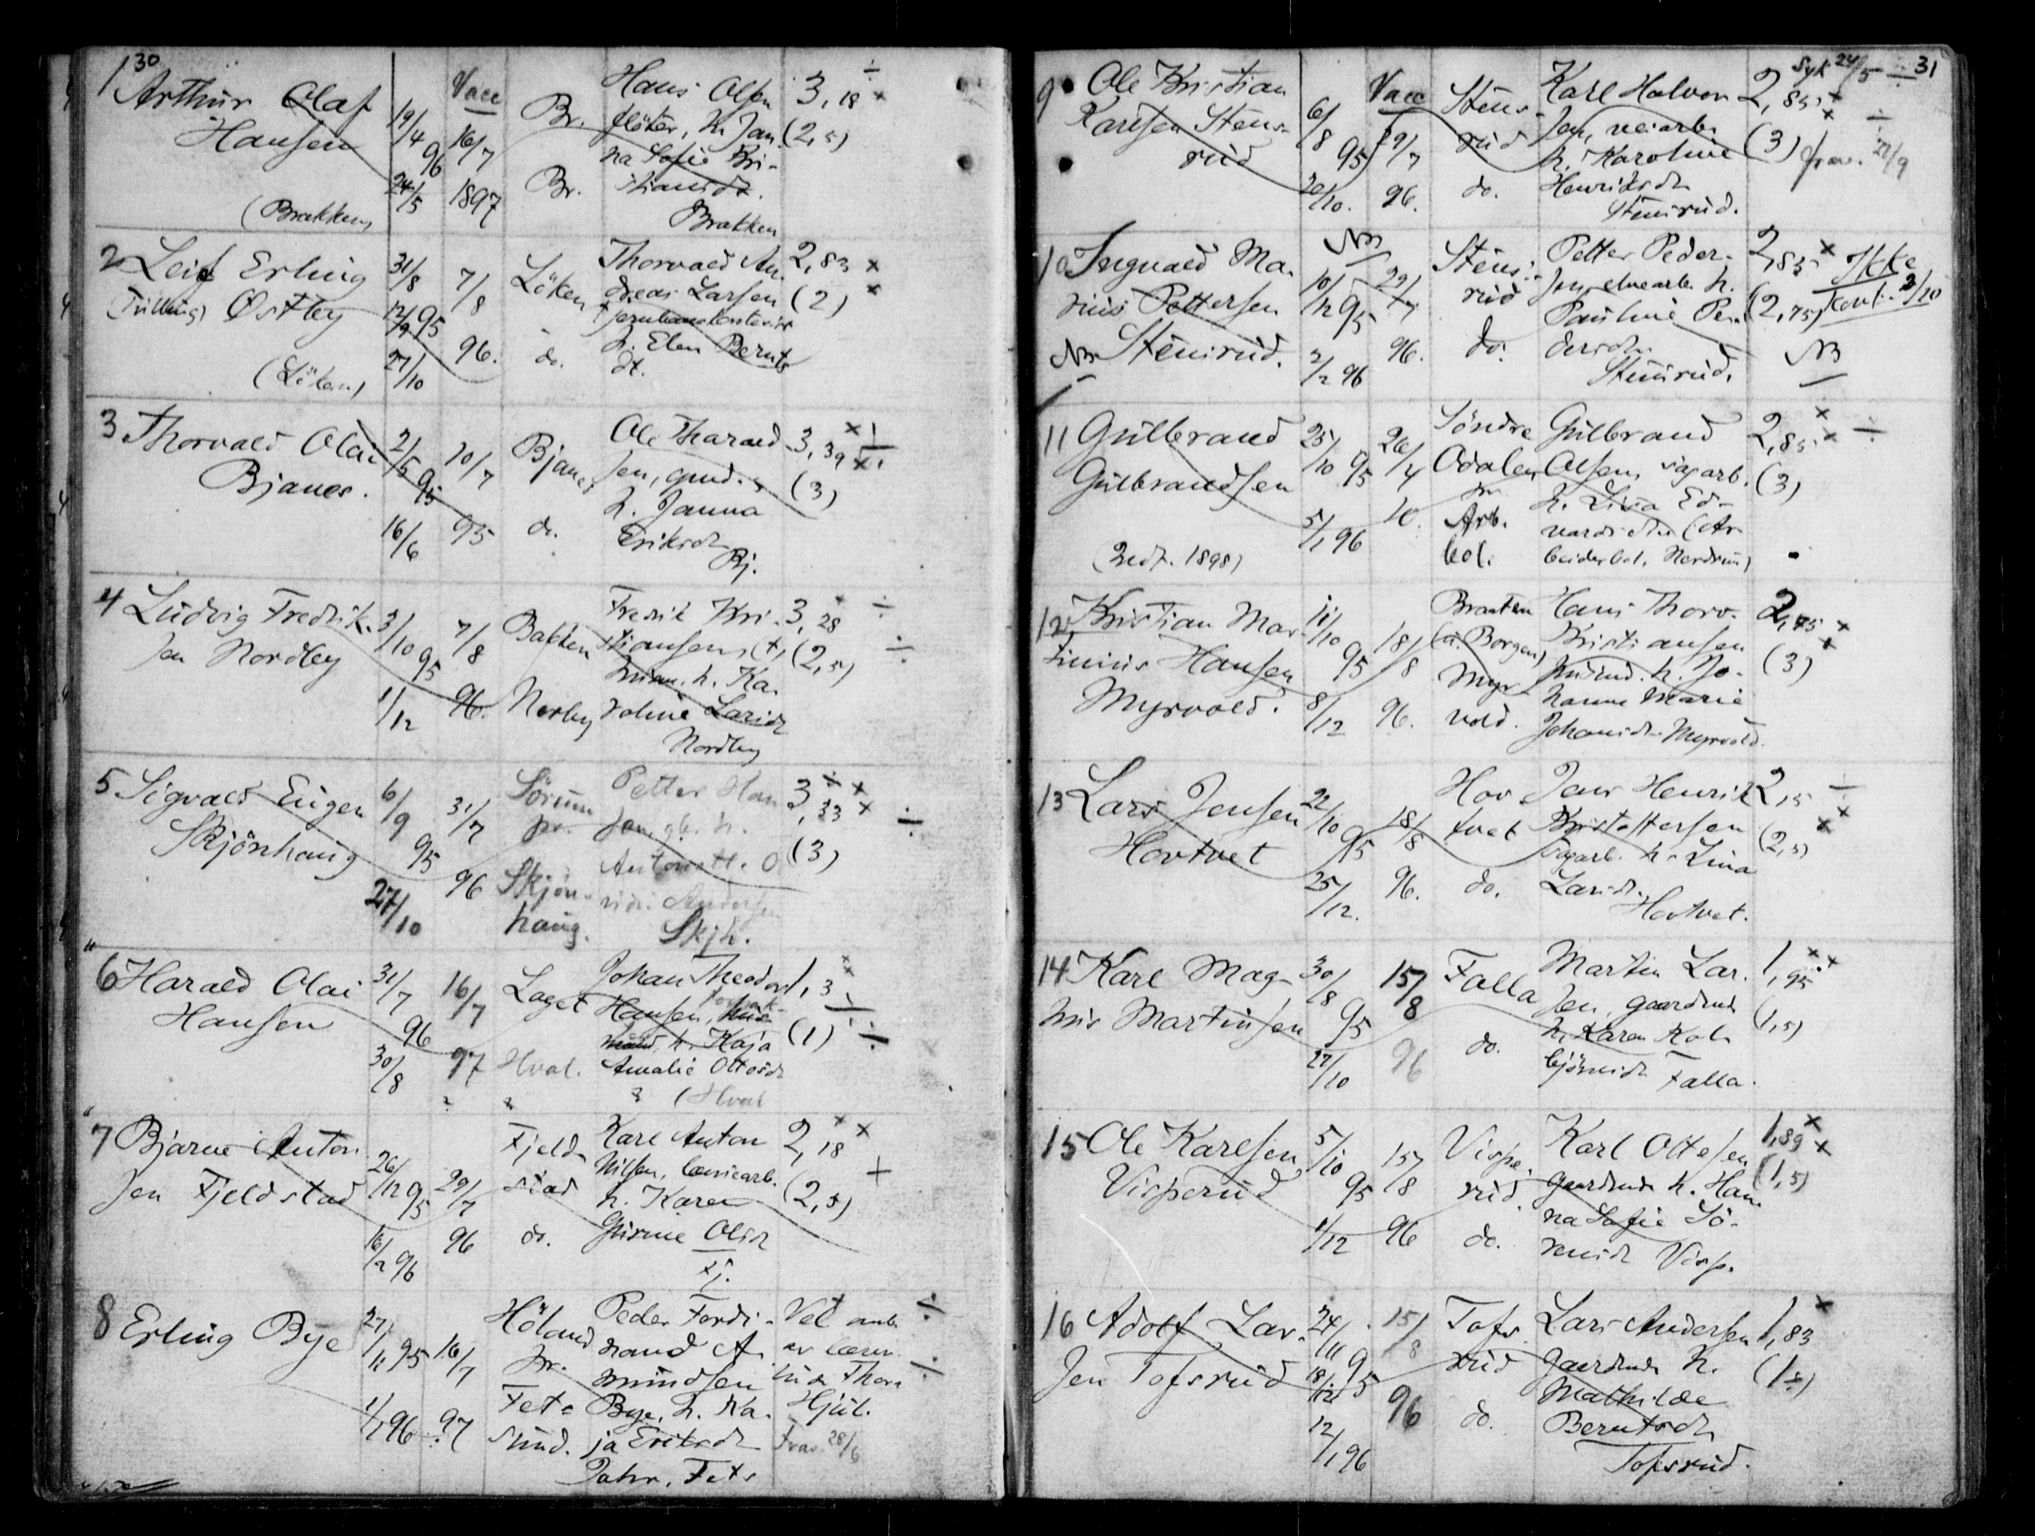 30
Vacc
1 Arthur Olaf Hansen
(Brakken)
19/4 96
24/5
16/7
1897
Br.
Br.
Hans Olsen
fløter, h. Jan
na Sofie Kri-
stiansdt.
Brakken
3,18 ÷ ×
(2,5)
2 Leif Erling
(Tvilling) Østby
(Löken)
31/8
12/9 95
27/10
7/8
96.
Löken
do.
Thorvald An
dreas Larsen
h. Elen Bernts
dt.
2,83 ×
(2) ×
3 Thorvald Olai
Bjanes.
2/5 95
16/6
20/7
95
Bjanes
do.
Ole Tharald
sen, gmd.
h. Janna
Eriksdt.
Bj.
3,39 × ÷
(3)
4 Ludvig Fredrik-
sen Nordby
3/10 95
1/12
7/8
96.
Bakken
Norby
Fredrik Kri-
stiansen, (†)
h. Ka-
roline Larsdt
Nordby
3,28 × ÷
(2,5) ÷
5 Sigvald Eugen
Skjönhaug
6/9 95
27/10
31/7
96
Sørum
pr.
Skjön-
haug.
Petter Han
sen gb. h.
Antonett. O
Andersen
Skjh.
3,33 ÷ × ×
(3) ÷
6 Harald Olai
Hansen
31/7 96
30/8
16/7
97
Laget
Hval.
Johan Theodor
Hansen,
h. Kaja
Amalie Ottosdt
(Hval
1,3 × ×
(1) ÷ ÷
7 Bjarne Anton
sen Fjeldstad
26/12 95
16/2 96
29/7
96
Fjeld-
stad
do.
Karl Anton
Nilsen,
h. Karen
Gurine Olsdt
Fj.
2,18 × ×
(2,5) +
8 Erling Bye
27/11 95
1/1 96
16/7
97
Höland
pr.
Fet-
sund.
Peder Ferdi-
nand A-
mundsen
Bye, h. Ka-
ja Eriksdt
Fets
Vel anb.
av lærer
Thorv
Hjul.
Frav. 28/6
÷ ÷
31
Vacc
9 Ole Kristian
Karlsen Stens-
rud
6/8 95
20/10.
29/7
96.
Stens-
rud
do.
Karl Halvor
sen, veiarb.
h. Karoline
Henriksdt
Stensrud.
Syk 24/5 ÷
2,85 × ×
(3) frav. 21/9 ÷
10 Ingvald Ma-
rius Pettersen
NB Stensrud.
NB
10/12 95
2/2 96
29/7
96.
Stens-
rud
do.
Petter Peder-
sen, elvearb. h.
Pauline Pe-
dersdt.
Stensrud.
2,85 ×
(2,75)
Ikke
konf. 3/10
NB
11 Gulbrand
Gulbrandsen
(Zedt. 1898)
25/10 95
5/1 96
26/4
10.
Söndre
Odalen
pr.
Arb.
bol.
Gulbrand
Olsen, sagarb.
h. Lina Ed-
vardsdtr (Ar
beiderbol. Nerdrum)
2,85 × × ÷
(3)
12 Kristian Mar
tinius Hansen
Myrvold.
11/10 95
8/12
18/8
96.
Braaten
(u. Borgen)
Myr-
vold.
Hans Thorv.
Kristiansen
h. Jo-
hanne Marie
Johansdt. Myrvold.
2,75 × ×
(3)
13 Lars Jensen
Hovtvet
22/10 95
25/12.
18/8
96.
Hov-
tvet
do.
Jens Henrik
Kristoffersen
sagarb. h. Lina
Larsdt.
Hovtvet.
2,15 ÷ × ×
(2,5)
14 Karl Mag-
nus Martinsen
30/8 95
27/10
15/8
96
Falla
do.
Martin Lar-
sen, gaardmd.
h. Karen Kol-
björnsdt
Falla.
1,95 × ×
(1,5)
15 Ole Karlsen
Visperud
5/10 95
1/12
15/8
96
Vispe-
rud.
do.
Karl Ottesen
gaardmd. h. Han-
na Sofie Sö-
rensdt Visp.
1,89 × ×
(1,5)
16 Adolf Lar-
sen Tofsrud
24/11 95
18/12
12/1 96
15/8
96
Tofs-
rud
do.
Lars Andersen
gaardmd. h.
Mathilde
Berntsdt
Tofsrud.
1,83 ×